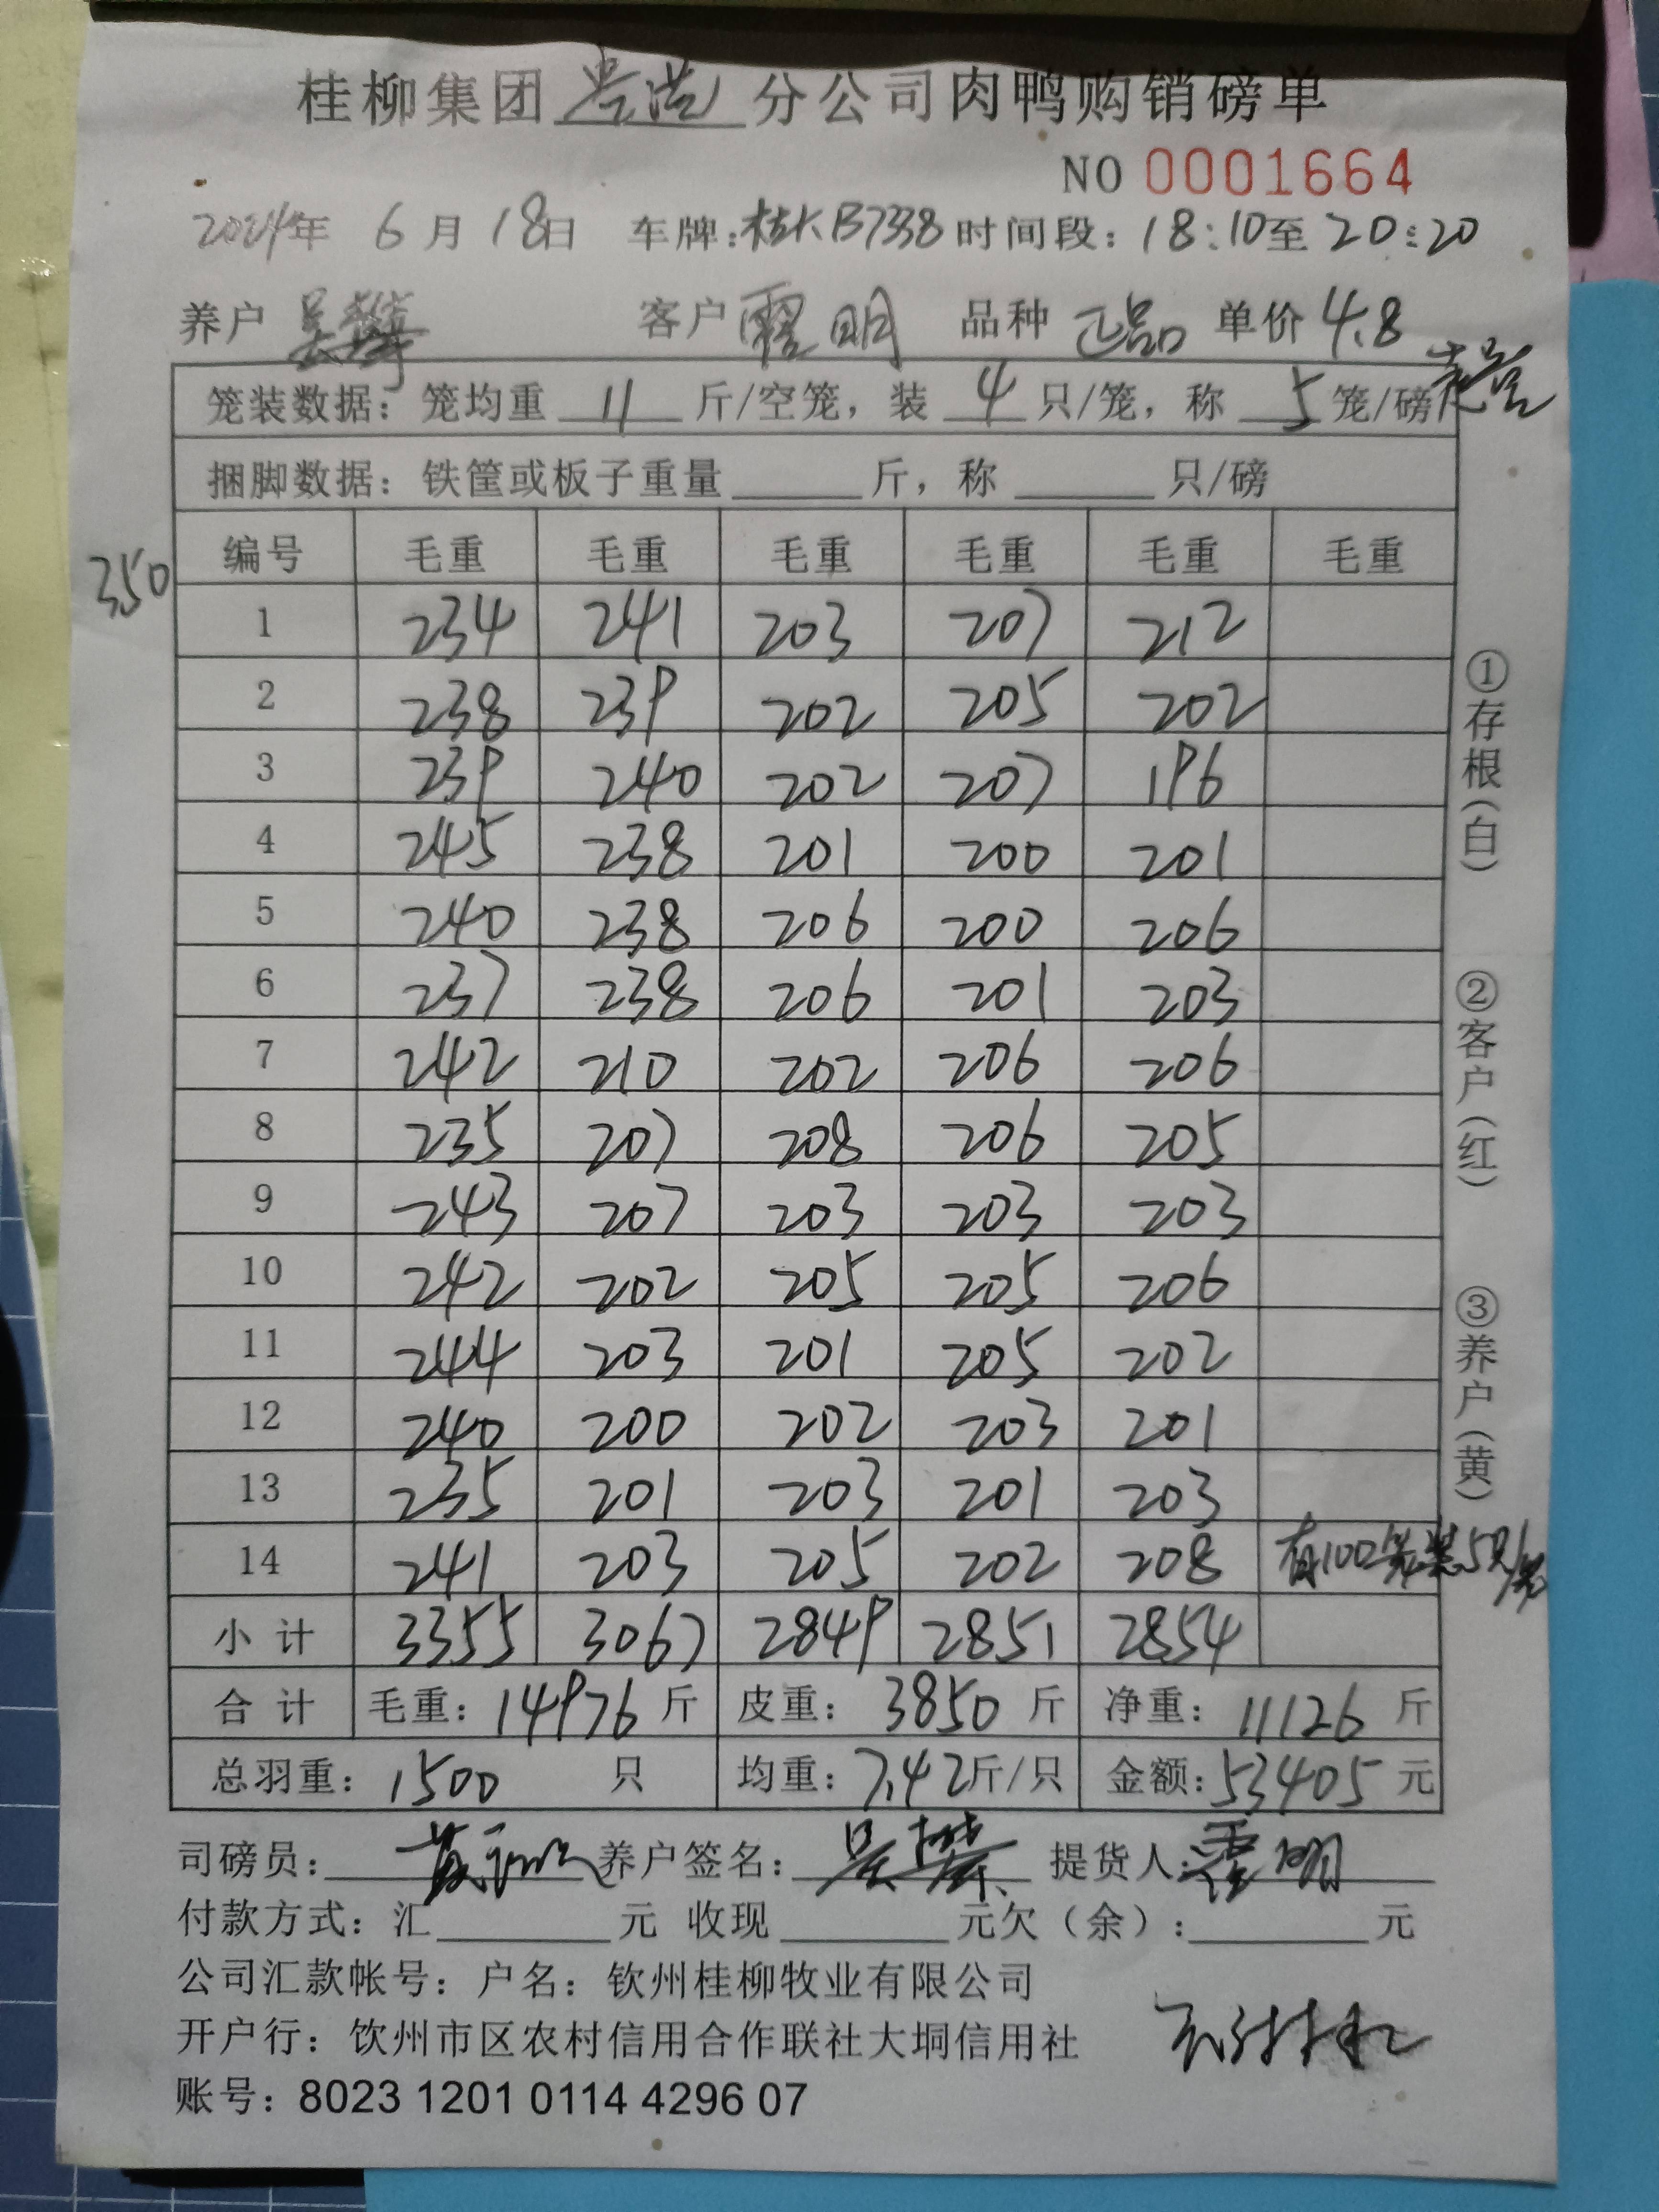 桂柳集团贵港分公司肉鸭购销磅单
NO 0001664
2024年 6月18日 车牌:桂KB7338 时间段:18:10至20:20
养户 吴 客户 明 品种 正品 单价 4.8
笼装数据:笼均重 11 斤/空笼,装 4 只/笼,称 5 笼/磅
捆脚数据:铁筐或板子重量 斤,称 只/磅
350
编号 毛重 毛重 毛重 毛重 毛重 毛重
1 234 241 203 207 212
2 238 239 202 205 202
3 239 240 202 207 196
4 245 238 201 200 201
5 240 238 206 200 206
6 237 238 206 201 203
7 242 210 202 206 206
8 235 207 208 206 205
9 243 207 203 203 203
10 242 202 205 205 206
11 244 203 201 205 202
12 240 200 202 203 201
13 235 201 203 201 203
14 241 203 205 202 208 有100笼装5只/笼
小计 3355 3067 2849 2851 2854
合计 毛重:14976斤 皮重:3850斤 净重:11126斤
总羽重:1500 只 均重:7.42斤/只 金额:53405元
司磅员: 养户签名:吴 提货人: 明
付款方式:汇 元 收现 元欠(余): 元
公司汇款帐号:户名:钦州桂柳牧业有限公司
开户行:饮州市区农村信用合作联社大垌信用社
账号:8023 1201 0114 4296 07
①存根(白)
②客户(红)
③养户(黄)